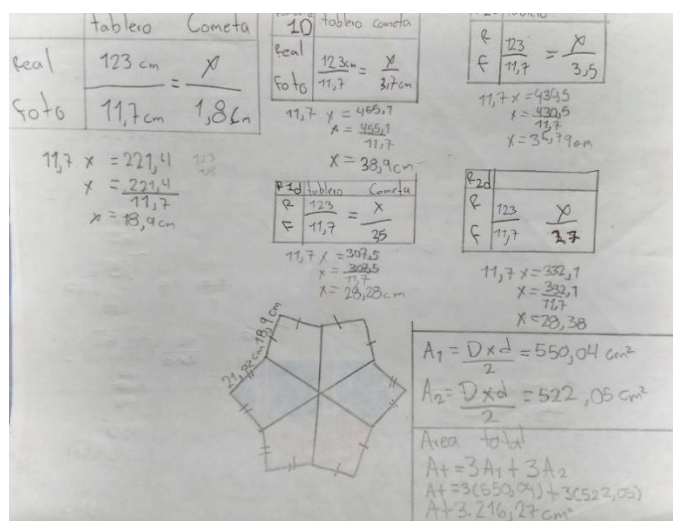 tablero Cometa
Real 123 cm = x
Foto 11,7cm 1,8cm
11,7 x = 221,4
x = 221,4
11,7
x = 18,9cm
10 tablero cometa
Real 123cm = x
Foto 11,7 3,7cm
11,7 x = 455,1
x = 455,1
11,7
x = 38,9cm
R 123 = x
F 11,7 3,5
11,7 x = 430,5
x = 430,5
11,7
x = 36,79cm
R1d tablero Cometa
R 123 = x
F 11,7 2,5
11,7 x = 307,5
x = 307,5
11,7
x = 28,28cm
R2d
R 123 x
F 11,7 2,7
11,7 x = 332,1
x = 332,1
11,7
x = 28,38
21,92cm 18,9cm
A1 = Dxd = 550,04 cm²
2
A2 = Dxd = 522,05 cm²
2
Area total
At = 3A1 + 3A2
At = 3(550,04) + 3(522,05)
At 3.216,27 cm²